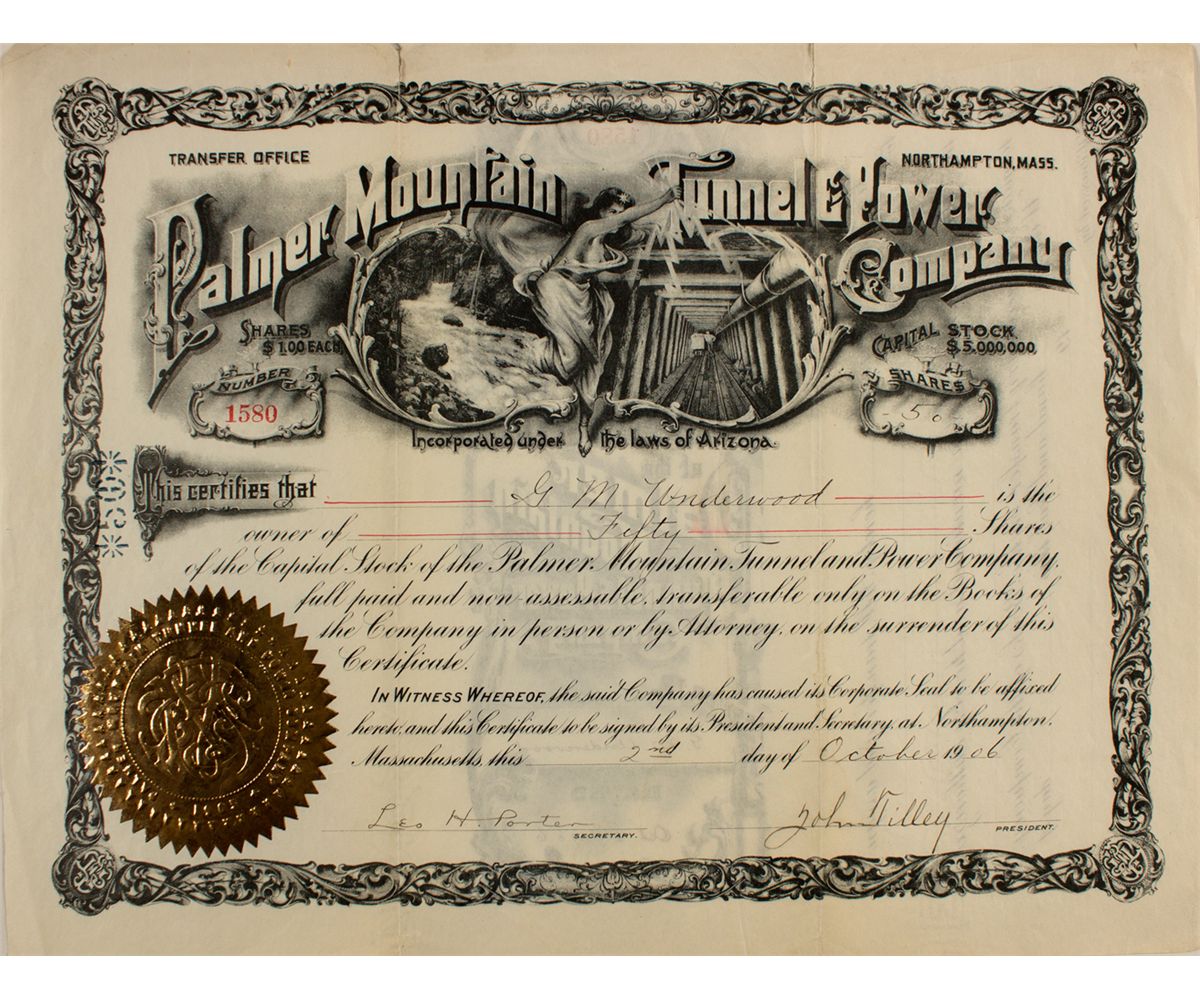 TRANSFER OFFICE
NORTHAMPTON, MASS.
Palmer Mountain Tunnel & Power Company
SHARES $1.00 EACH
CAPITAL STOCK $.5.000,000
NUMBER
1580
SHARES
- 50 -
Incorporated under the laws of Arizona.
This certifies that G. M. Underwood is the
owner of Fifty Shares
of the Capital Stock of the Palmer Mountain Tunnel and Power Company,
full paid and non-assessable, transferable only on the Books of
the Company in person or by Attorney, on the surrender of this
Certificate.
IN WITNESS WHEREOF, the said Company has caused its Corporate Seal to be affixed
hereto, and this Certificate to be signed by its President and Secretary, at Northampton,
Massachusetts, this 2nd day of October 1906
Leo H Porter
SECRETARY.
John Tilley
PRESIDENT.